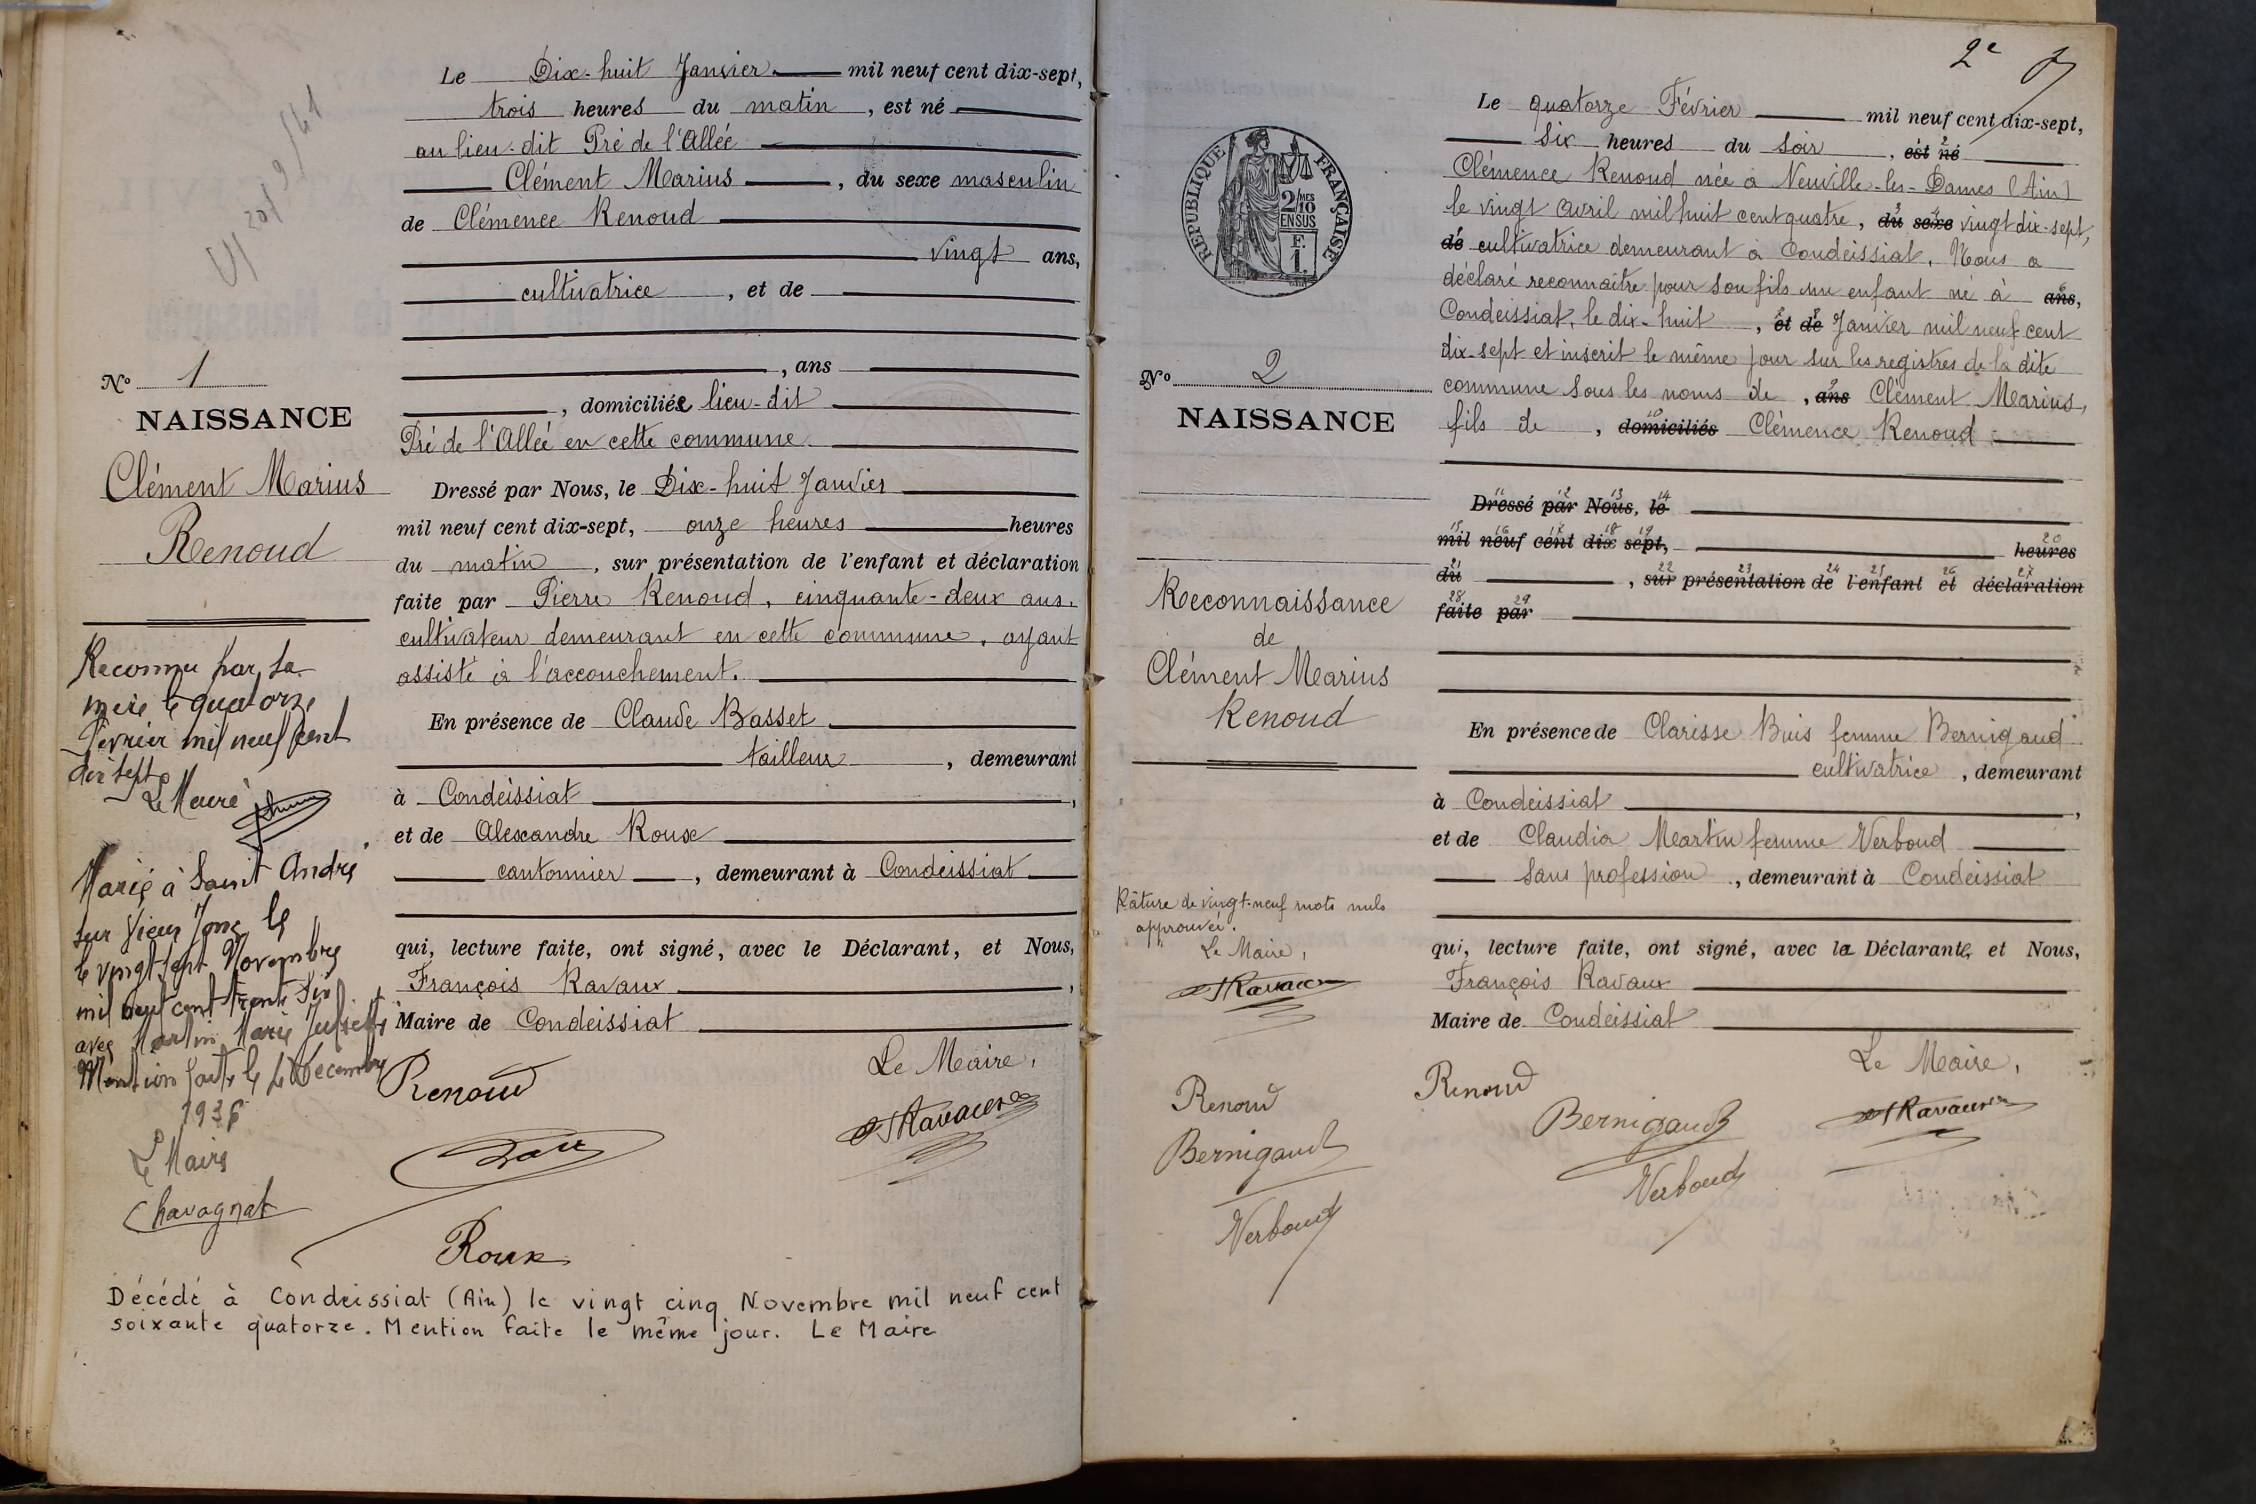 Le Dix-huit Janvier mil neuf cent dix-sept,
trois heures du matin, est né
au lieu-dit Pré de l'Allée
Clément Marius, du sexe masculin
de Clémence Renoud
vingt ans,
cultivatrice, et de
, ans
, domiciliée lieu-dit
Pré de l'Allée en cette commune.
Dressé par Nous, le Dix-huit Janvier
mil neuf cent dix-sept, onze heures heures
du matin, sur présentation de l'enfant et déclaration
faite par Pierre Renoud, cinquante-deux ans,
cultivateur demeurant en cette commune, ayant
assisté à l'accouchement.
En présence de Claude Basset
tailleur, demeurant
à Condeissiat,
et de Alexandre Roux
cantonnier, demeurant à Condeissiat
qui, lecture faite, ont signé, avec le Déclarant, et Nous,
François Ravaux,
Maire de Condeissiat
Le Maire,
Renoud
Ravaux
Roux
No 1
NAISSANCE
Clément Marius
Renoud
Reconnu par sa
mère le quatorze
Février mil neuf cent
dix sept
Le Maire
Marié à Saint André
sur Vieux Jonc le
le vingt sept Novembre
mil neuf cent trente six
avec Martin Marie Juliette
Mention faite le Décembre
1936
Le Maire
Chavagnat
Décédé à Condeissiat (Ain) le vingt cinq Novembre mil neuf cent
soixante quatorze. Mention faite le même jour. Le Maire
2e
RÉPUBLIQUE FRANÇAISE
2/MES
10
EN SUS
F.
1.
Le quatorze Février mil neuf cent dix-sept,
six heures du soir, est né
Clémence Renoud née à Neuville-les-Dames (Ain)
le vingt avril mil huit cent quatre, du sexe vingt dix-sept,
de cultivatrice demeurant à Condeissiat, Nous a
déclaré reconnaître pour son fils un enfant né à ans,
Condeissiat, le dix-huit, et de Janvier mil neuf cent
dix-sept et inscrit le même jour sur les registres de la dite
commune sous les noms de, ans Clément Marius,
fils de, domiciliés Clémence Renoud
Dressé par Nous, le
mil neuf cent dix sept, heures
du, sur présentation de l'enfant et déclaration
faite par
En présence de Clarisse Buis femme Bernigaud
cultivatrice, demeurant
à Condeissiat,
et de Claudia Martin femme Verboud
sans profession, demeurant à Condeissiat
qui, lecture faite, ont signé, avec la Déclarante, et Nous,
François Ravaux
Maire de Condeissiat
Le Maire,
Renoud
Bernigaud
Ravaux
Verboud
No 2
NAISSANCE
Reconnaissance
de
Clément Marius
Renoud
Râture de vingt-neuf mots nuls
approuvée.
Le Maire,
Ravaux
Renoud
Bernigaud
Verboud